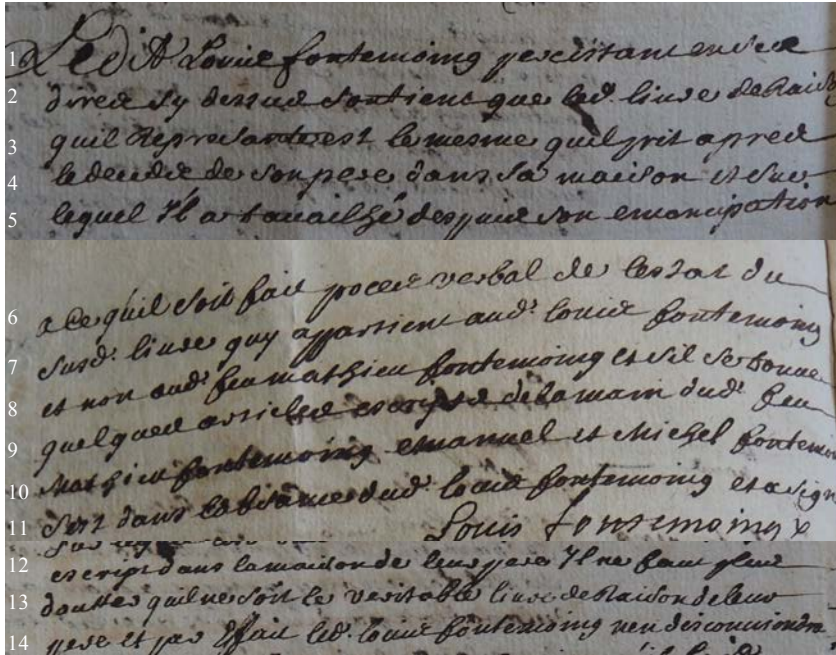 1 Ledit Louis fontemoing percistant en ses
2 dires sy dessus soutient que led. livre de Raison
3 quil Represante est le mesme quil prit apres
4 le decedz de son pere dans sa maison et sur
5 lequel Il a travailhé despuis son emancipation
6 a ce quil soit fait proces verbal de lestat du
7 susd. livre quy appartient aud. louis fontemoing
8 et non aud. feu mathieu fontemoing et sil se trouve
9 quelques articles escripts de la main dud. feu
10 Mathieu fontemoing emanuel et Michel fontemoin
11 sest dans labsance dud. louis fontemoing et a sign
Louis fontemoing
12 escript dans la maison de leur pere Il ne faut plus
13 doutter quil ne soit le veritable livre de Raison de leur
14 pere et par Effait led. louis fontemoing nen disconviendra